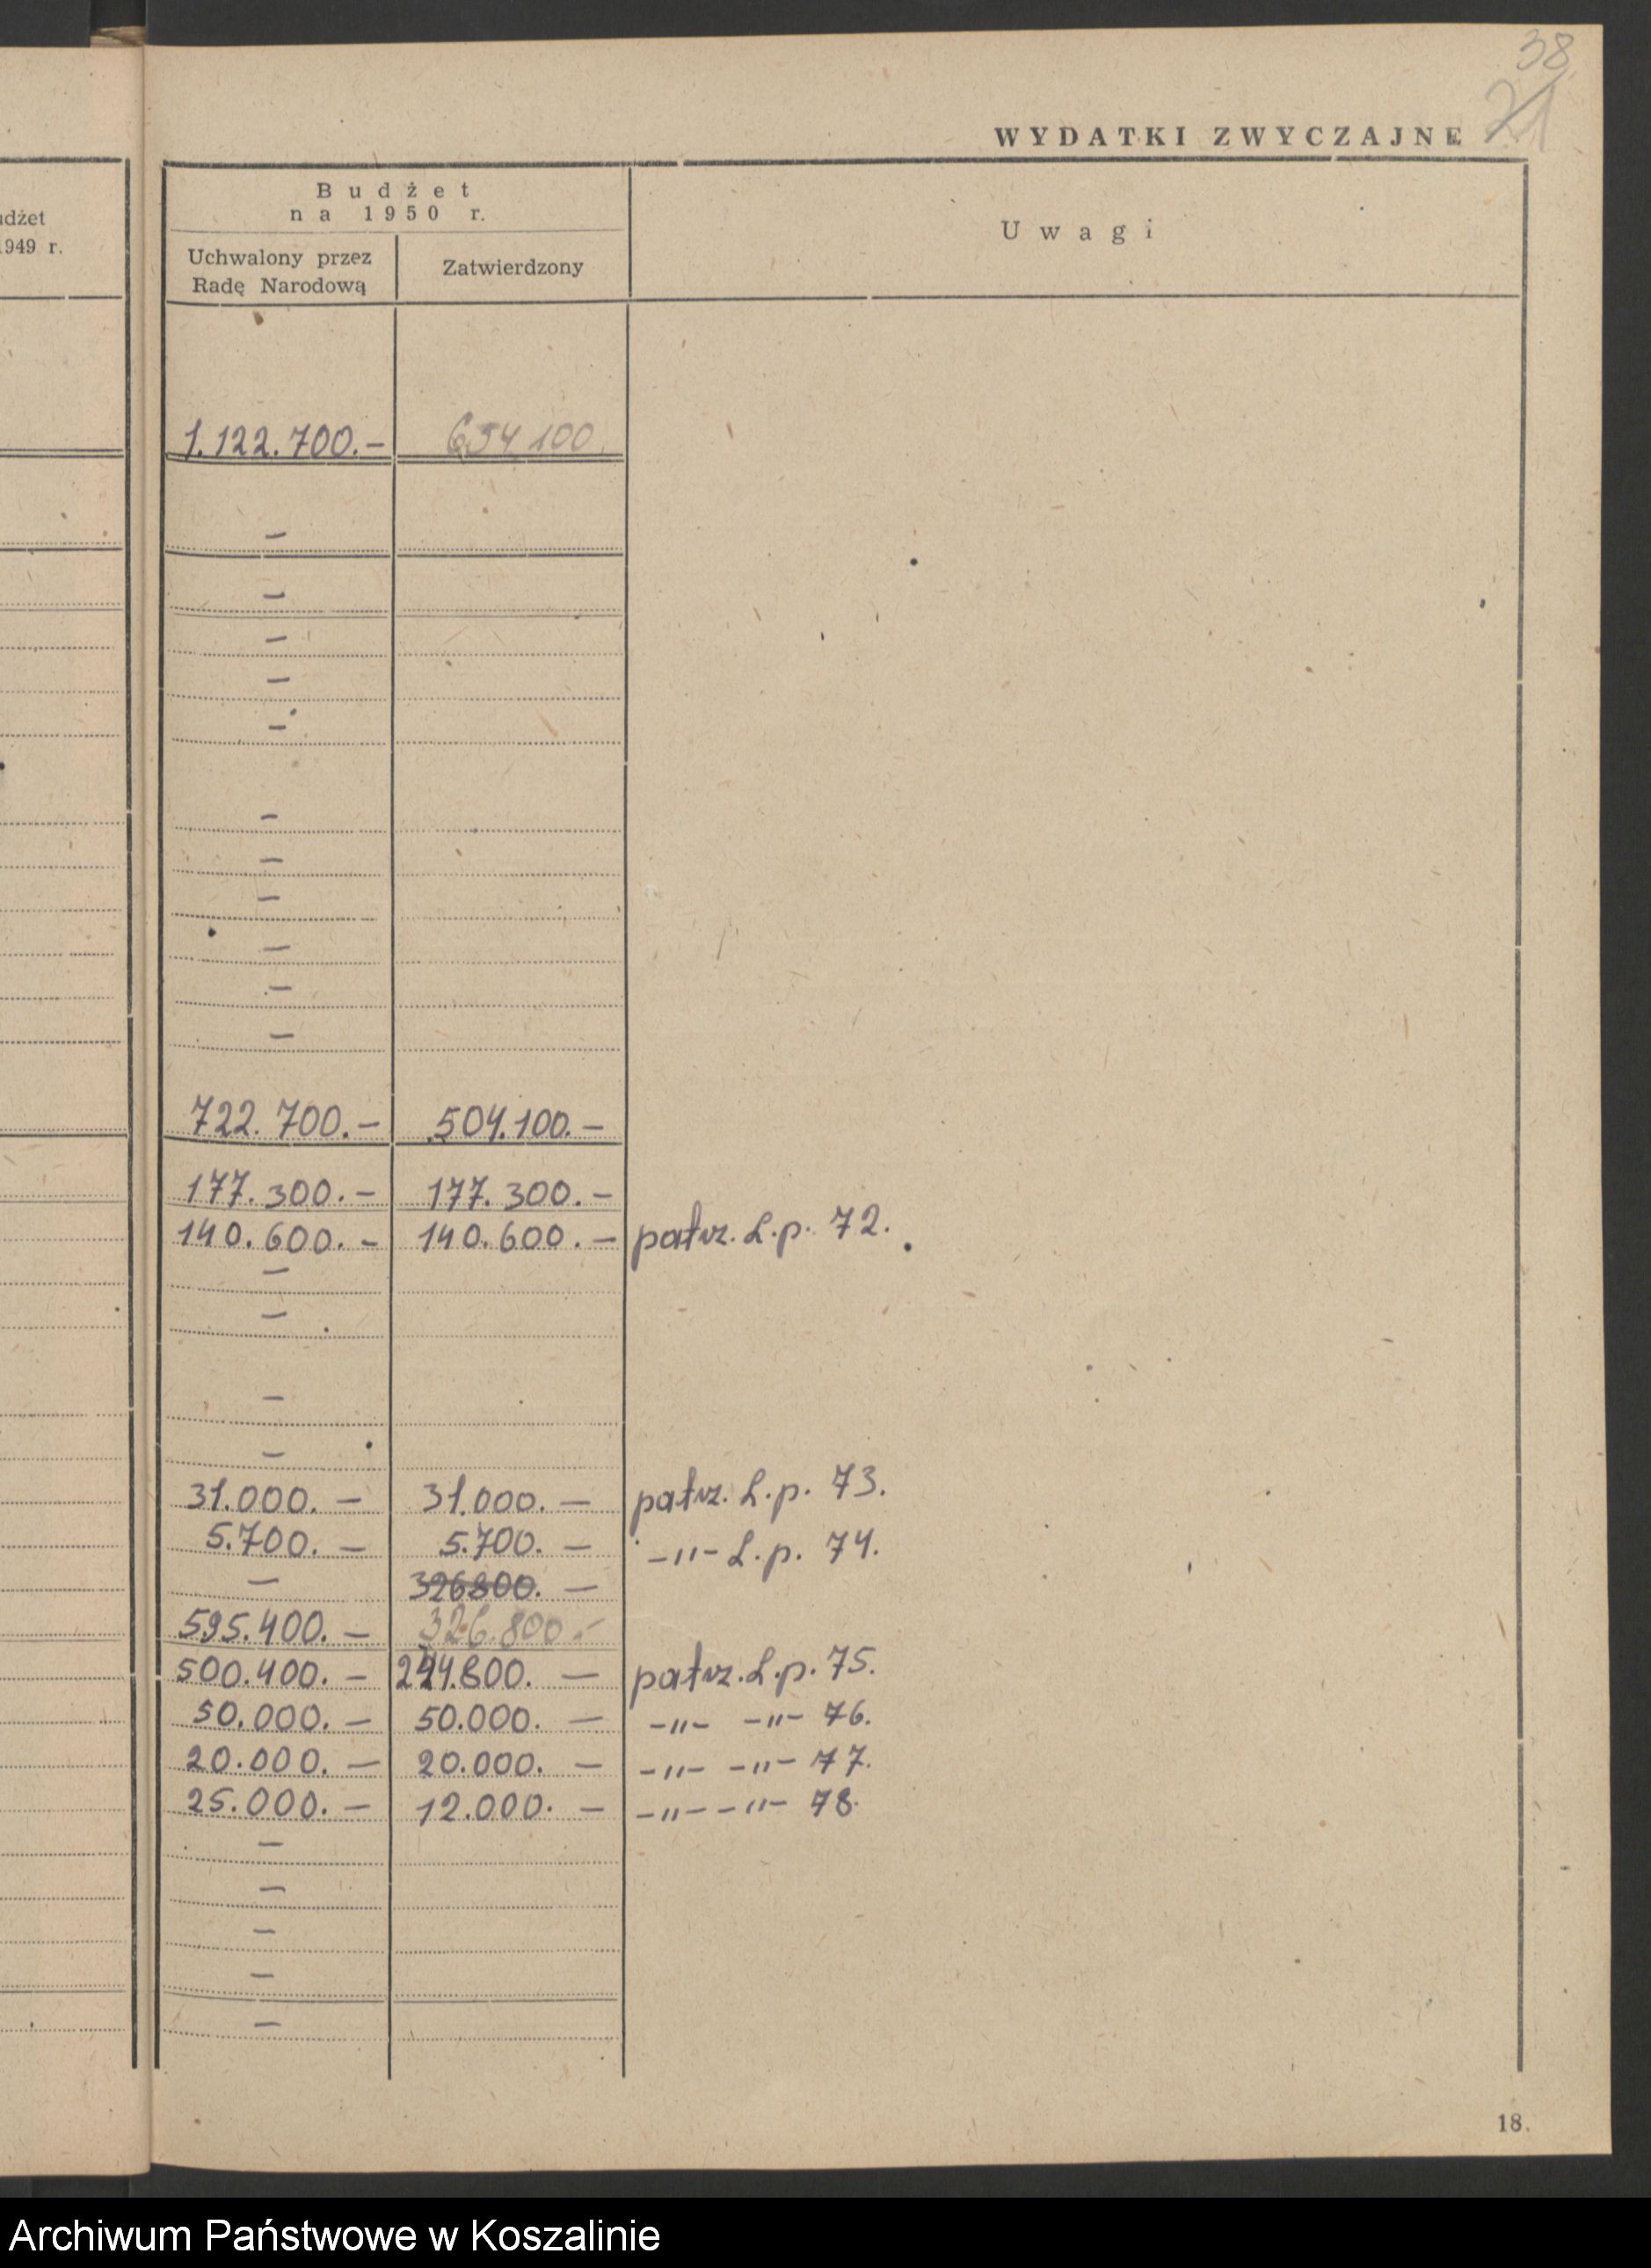 38
21
WYDATKI ZWYCZAJNE
udżet
1949 r.
Budżet
na 1950 r.
Uwagi
Uchwalony przez
Radę Narodową
Zatwierdzony
1.122.700.- 654.100.
—
—
—
—
—
—
—
—
—
—
—
722.700.- 504.100.-
177.300.- 177.300.-
140.600.- 140.600.- patrz. L.p. 72.
—
—
—
—
31.000.— 31.000.— patrz. L.p. 73.
5.700.— 5.700.— -"- L.p. 74.
— 326800.—
595.400.— 326.800.-
500.400.— 244.800.— patrz. L.p. 75.
50.000.— 50.000.— -"- -"- 76.
20.000.— 20.000.— -"- -"- 77.
25.000.— 12.000.— -"- -"- 78.
—
—
—
—
—
18.
Archiwum Państwowe w Koszalinie